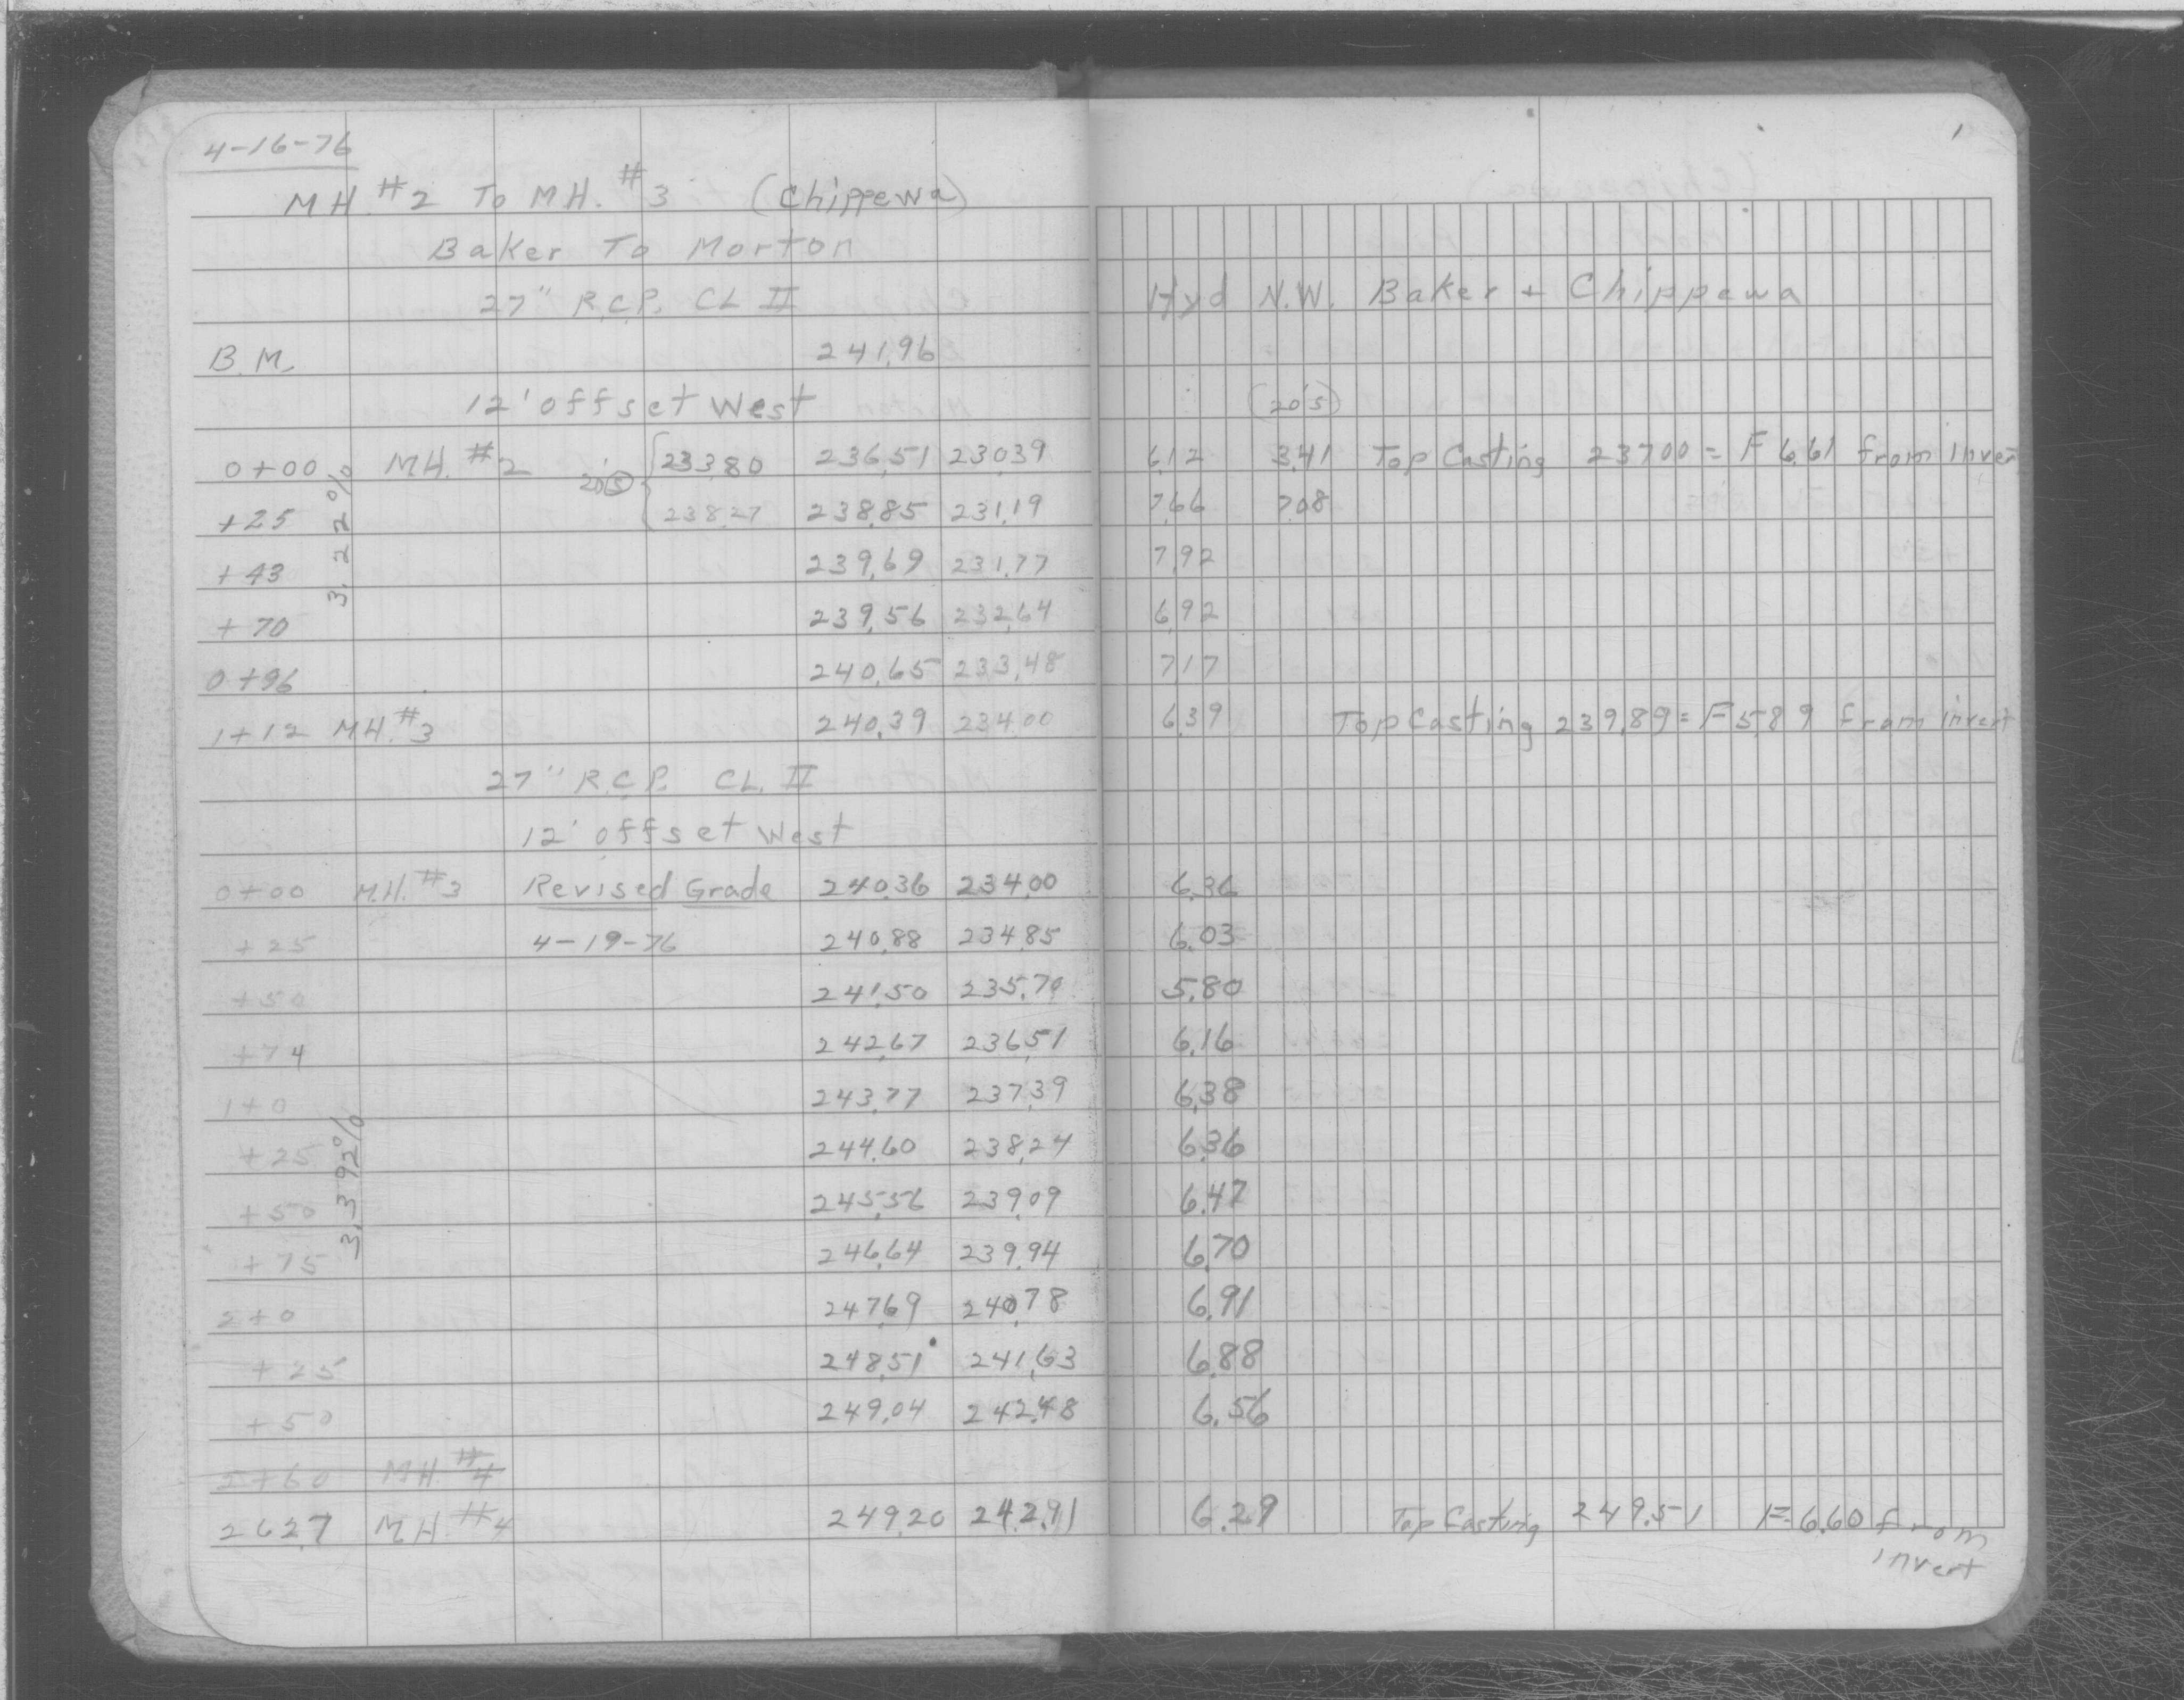 1
4-16-76
MH. #2 To MH. #3 (Chippewa)
Baker To Morton
27" R.C.P. CL II Hyd N.W. Baker + Chippewa
B.M. 241.96
12' offset West (20's)
0+00 MH. #2 20'S 233.80 236.51 230.39 6.12 3.41 Top Casting 237.00 = F 6.61 from invert
+25 238.27 238.85 231.19 7.66 7.08
+43 239.69 231.77 7.92
+70 239.56 232.64 6.92
0+96 240.65 233.48 7.17
3.22%
1+12 MH. #3 240.39 234.00 6.39 Top Casting 239.89 = F 5.89 from invert
27" R.C.P. CL. II
12' offset West
0+00 M.H. #3 Revised Grade 240.36 234.00 6.36
+25 4-19-76 240.88 234.85 6.03
+50 241.50 235.70 5.80
+74 242.67 236.51 6.16
1+0 243.77 237.39 6.38
+25 244.60 238.24 6.36
+50 245.56 239.09 6.47
+75 246.64 239.94 6.70
3.392%
2+0 247.69 240.78 6.91
+25 248.51 241.63 6.88
+50 249.04 242.48 6.56
2+60 MH. #4
262.7 MH. #4 249.20 242.91 6.29 Top Casting 249.51 F. 6.60 from
invert